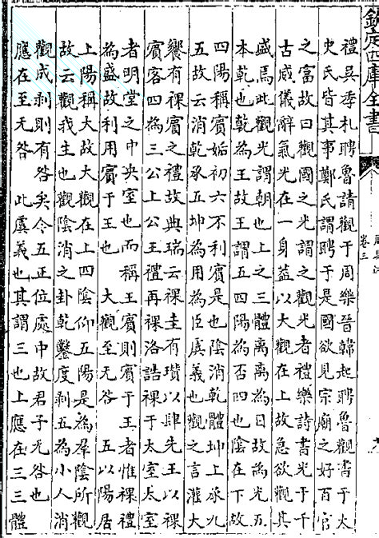 欽定四庫全書
卷三
禮吳季札聘魯請觀于周樂晉韓起聘魯觀書于大
史氏皆其事鄭氏謂聘于是國欲見宗廟之好百官
之富故曰觀國之光謂之觀光者禮樂詩書光于千
古威儀辭氣光在一身葢以大觀在上故急欲觀其
盛焉此觀光謂朝也上之三體離離為日故為光五
本乾也乾為王故王謂五四陽為否四也隂在下故
四陽稱賓姤初六不利賓是也隂消乾體坤上承九
五故云消乾承五坤為用為臣虞義也觀之言灌大
饗有祼賓之禮故典瑞云祼圭有瓚以肆先王以祼
賓客四為三公上公王禮再祼洛誥祼于太室太室
者明堂之中央室也而稱王賓則賓于王者惟祼禮
為盛故利用賓于王也 大觀至无咎 五以陽居
上陽稱大故大觀在上四隂仰五陽是為羣隂所觀
故云觀我生也觀隂消之卦乾鑿度剥五為小人消
觀成剥則有咎矣今五正位處中故君子无咎也
應在至无咎 此虞義也其謂三也上應在三三體